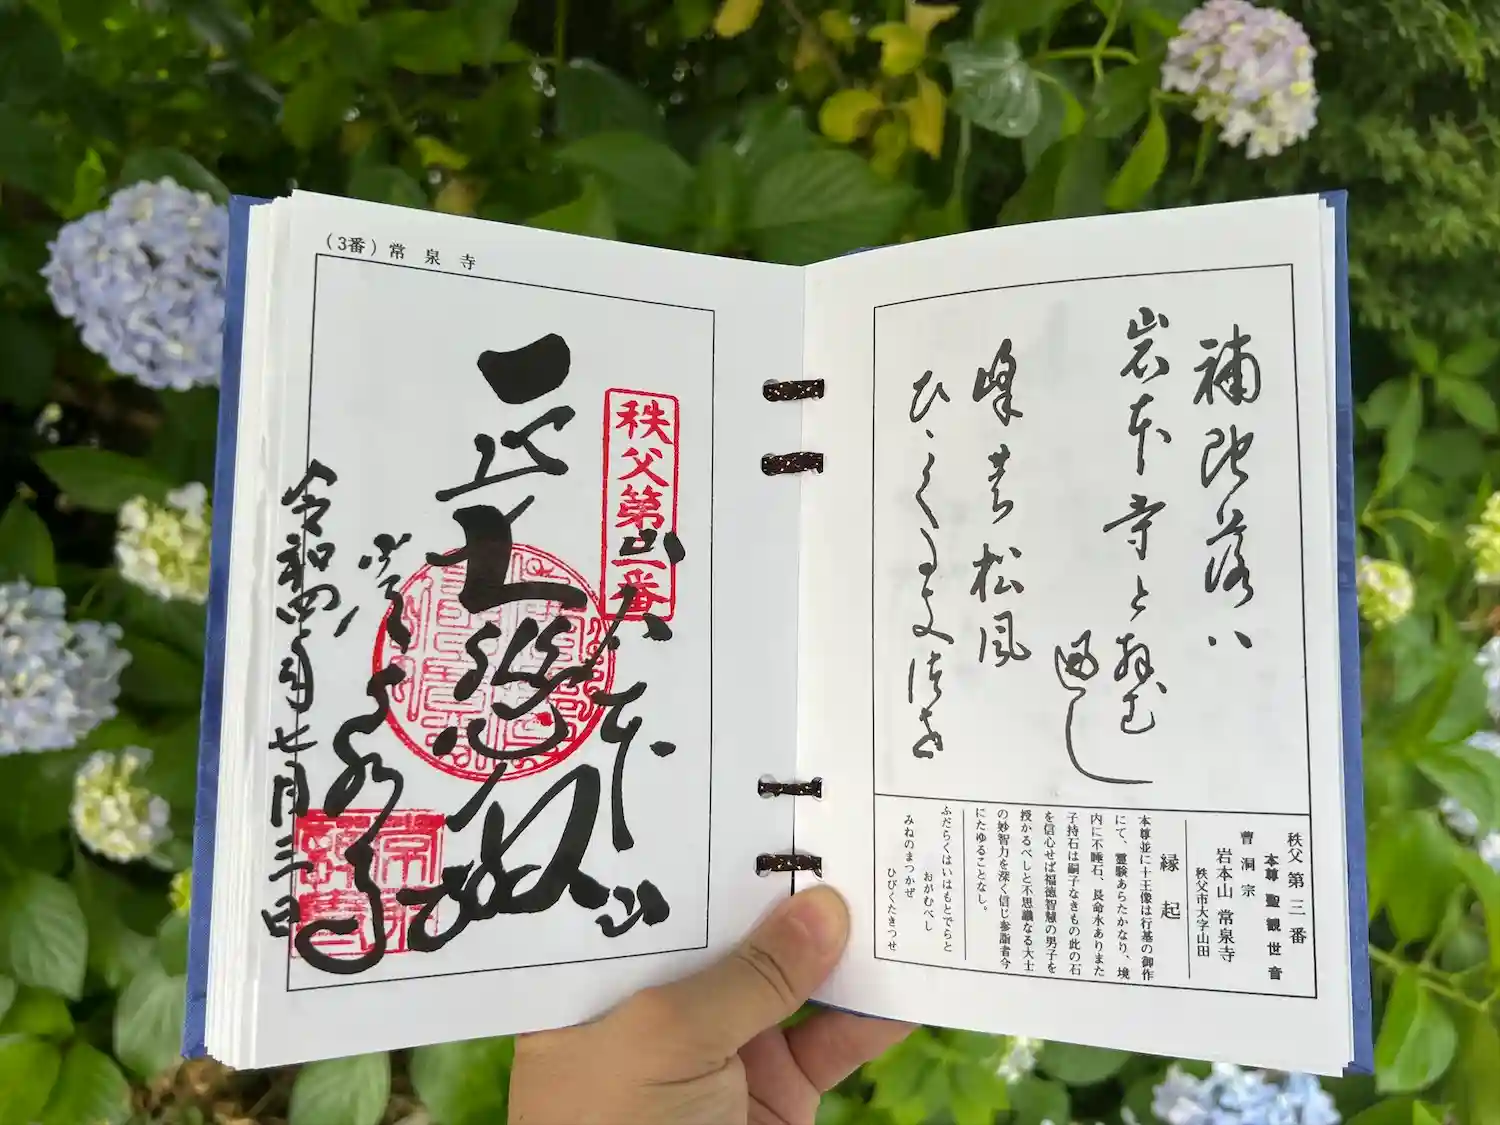 補陀落ハ
岩本寺と拝む
峰 松風
秩父第三番
本尊 聖観世音
曹洞宗
岩本山 常泉寺
秩父市大字山田
縁起
本尊並に十王像は行基の御作
にて、霊験あらたかなり、境
内に不睡石、長命水ありまた
子持石は嗣子なきもの此の石
を信心せば福徳智慧の男子を
授かるべしと不思議なる大士
の妙智力を深く信じ参詣者今
にたゆることなし。
ふだらくはいはもとでらと
おがむべし
みねのまつかぜ
ひびくたきつせ
(3番) 常泉寺
秩父第三番
岩本山
大悲殿
常泉寺
令和四年七月三日